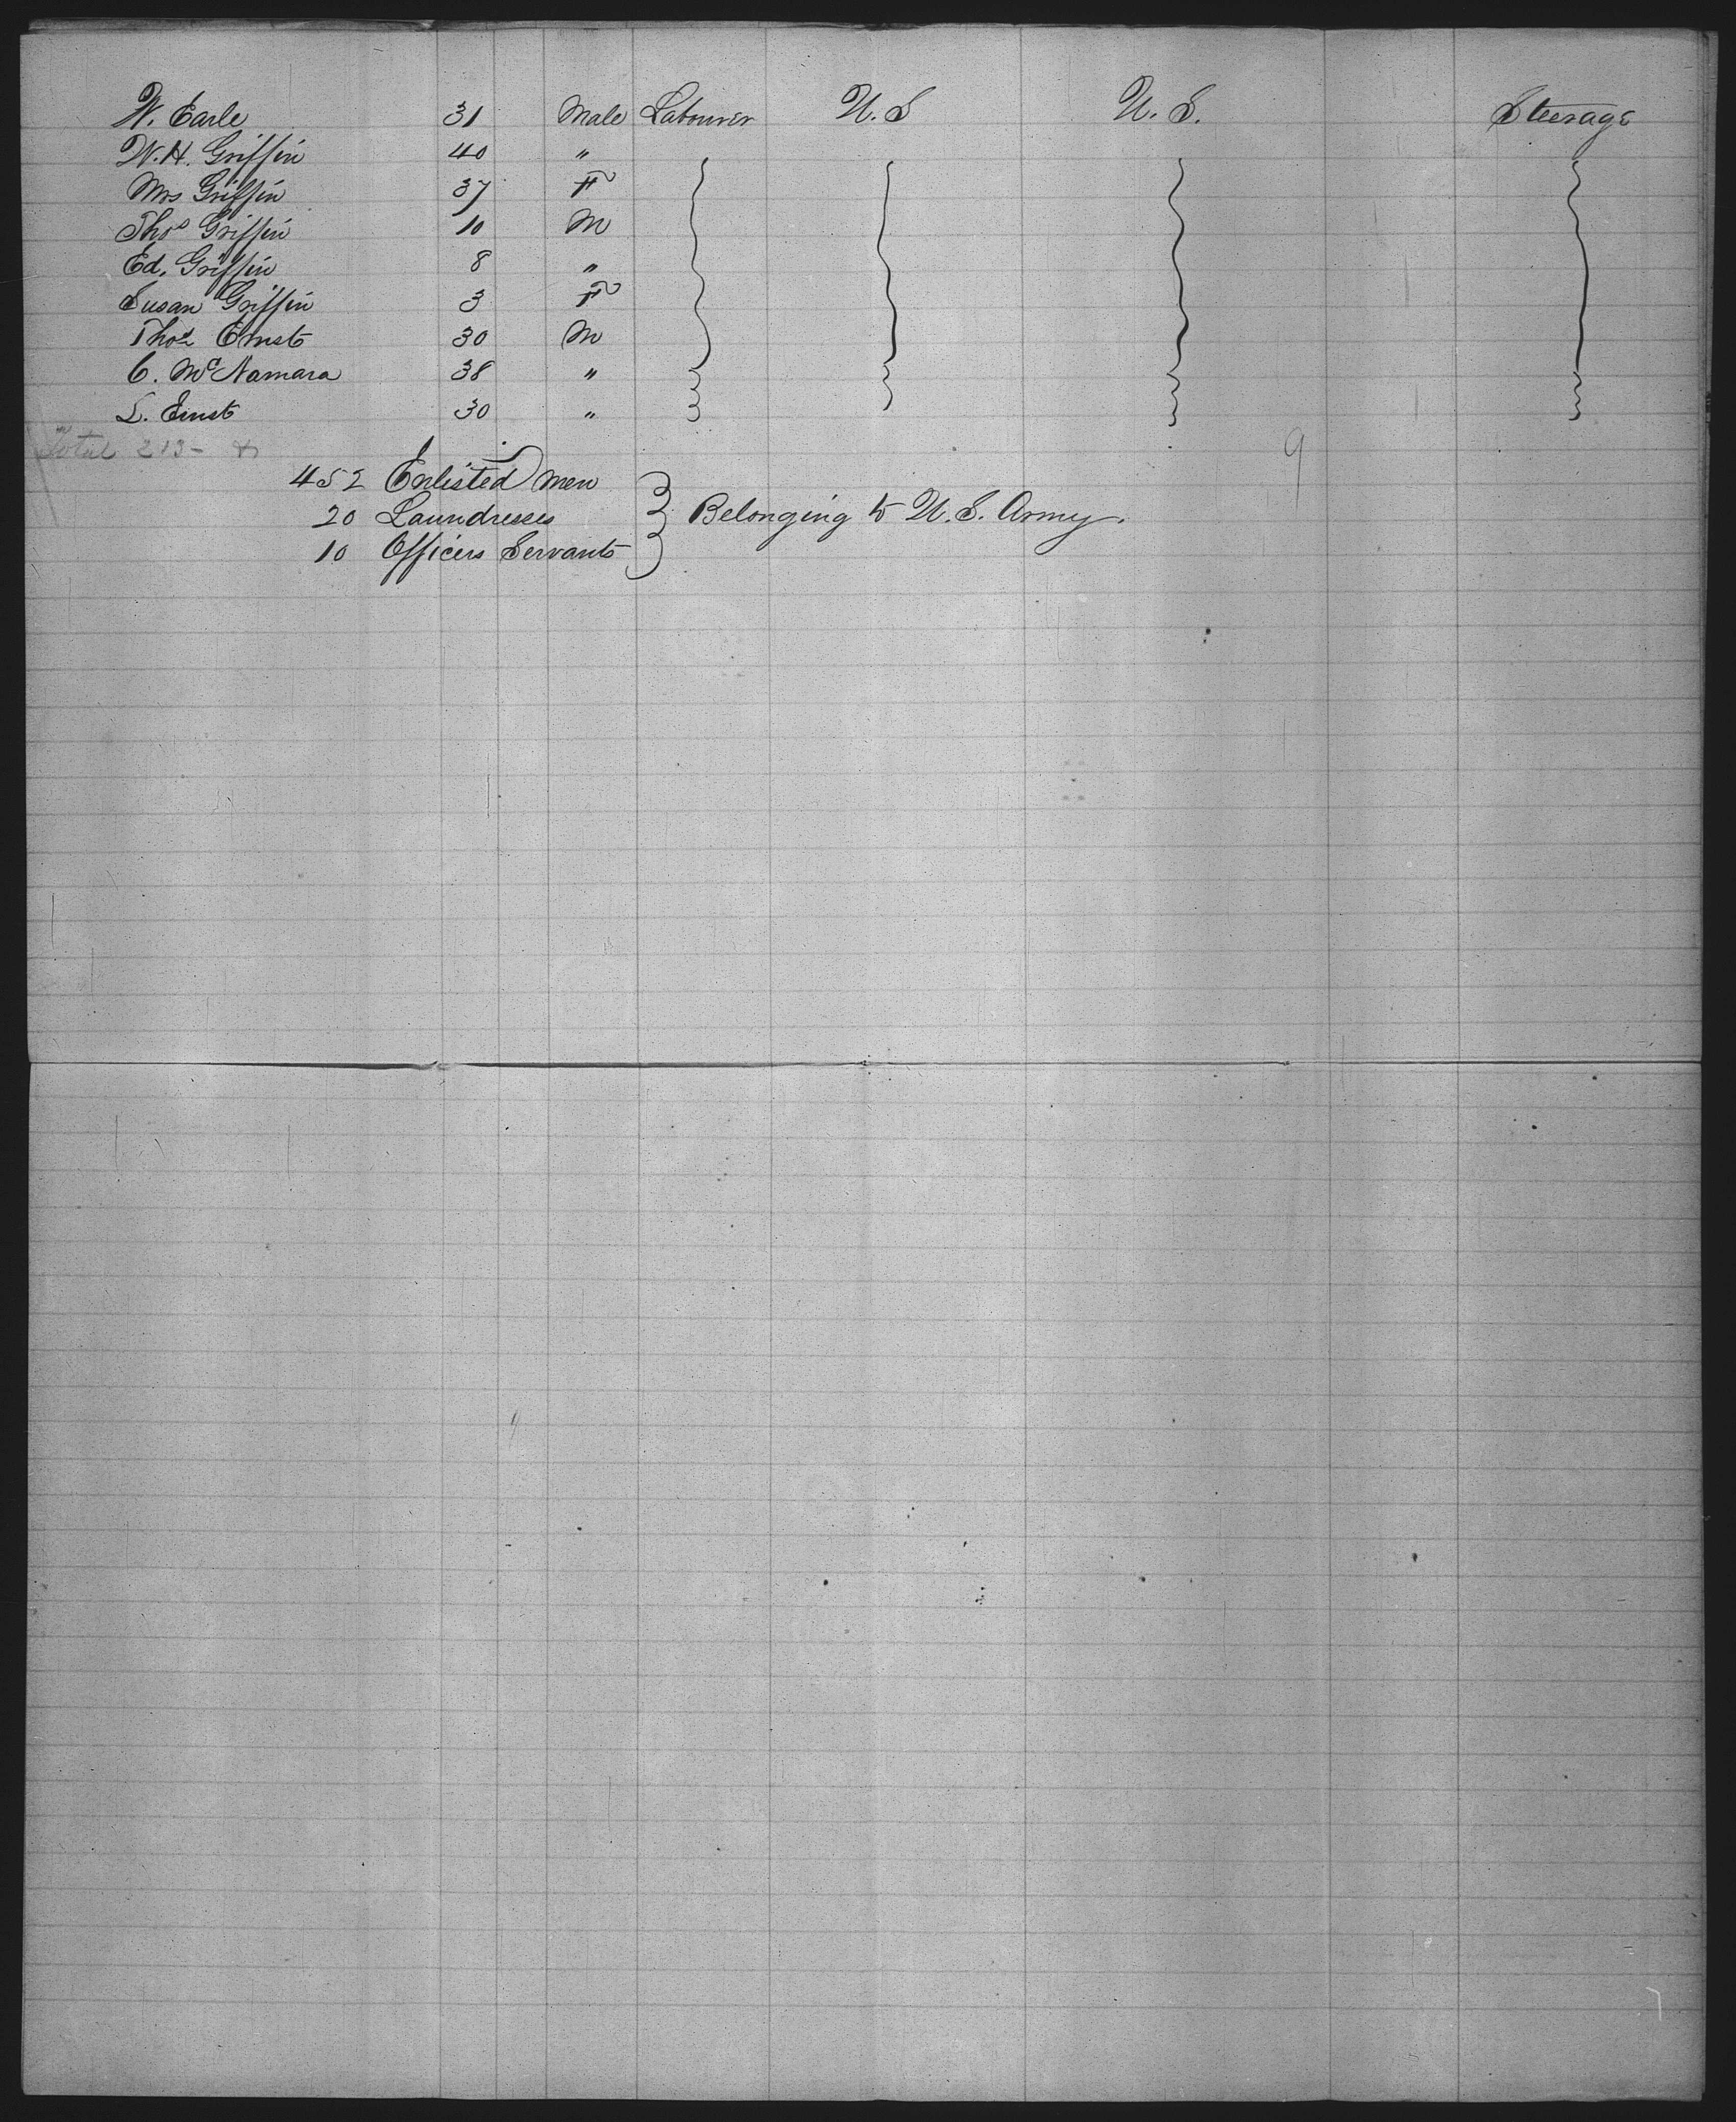 W. Earle 31 Male Labourer U. S U. S. Steerage
W. H. Griffin 40 "
Mrs Griffin 37 F
Thos Griffin 10 M
Ed. Griffin 8 "
Susan Griffin 3 F
Thos Ernst 30 M
C. McNamara 38 "
L. Ernst 30 "
Total 213 - &
9
452 Enlisted men
20 Laundresses
Belonging to U. S. Army.
10 Officers Servants